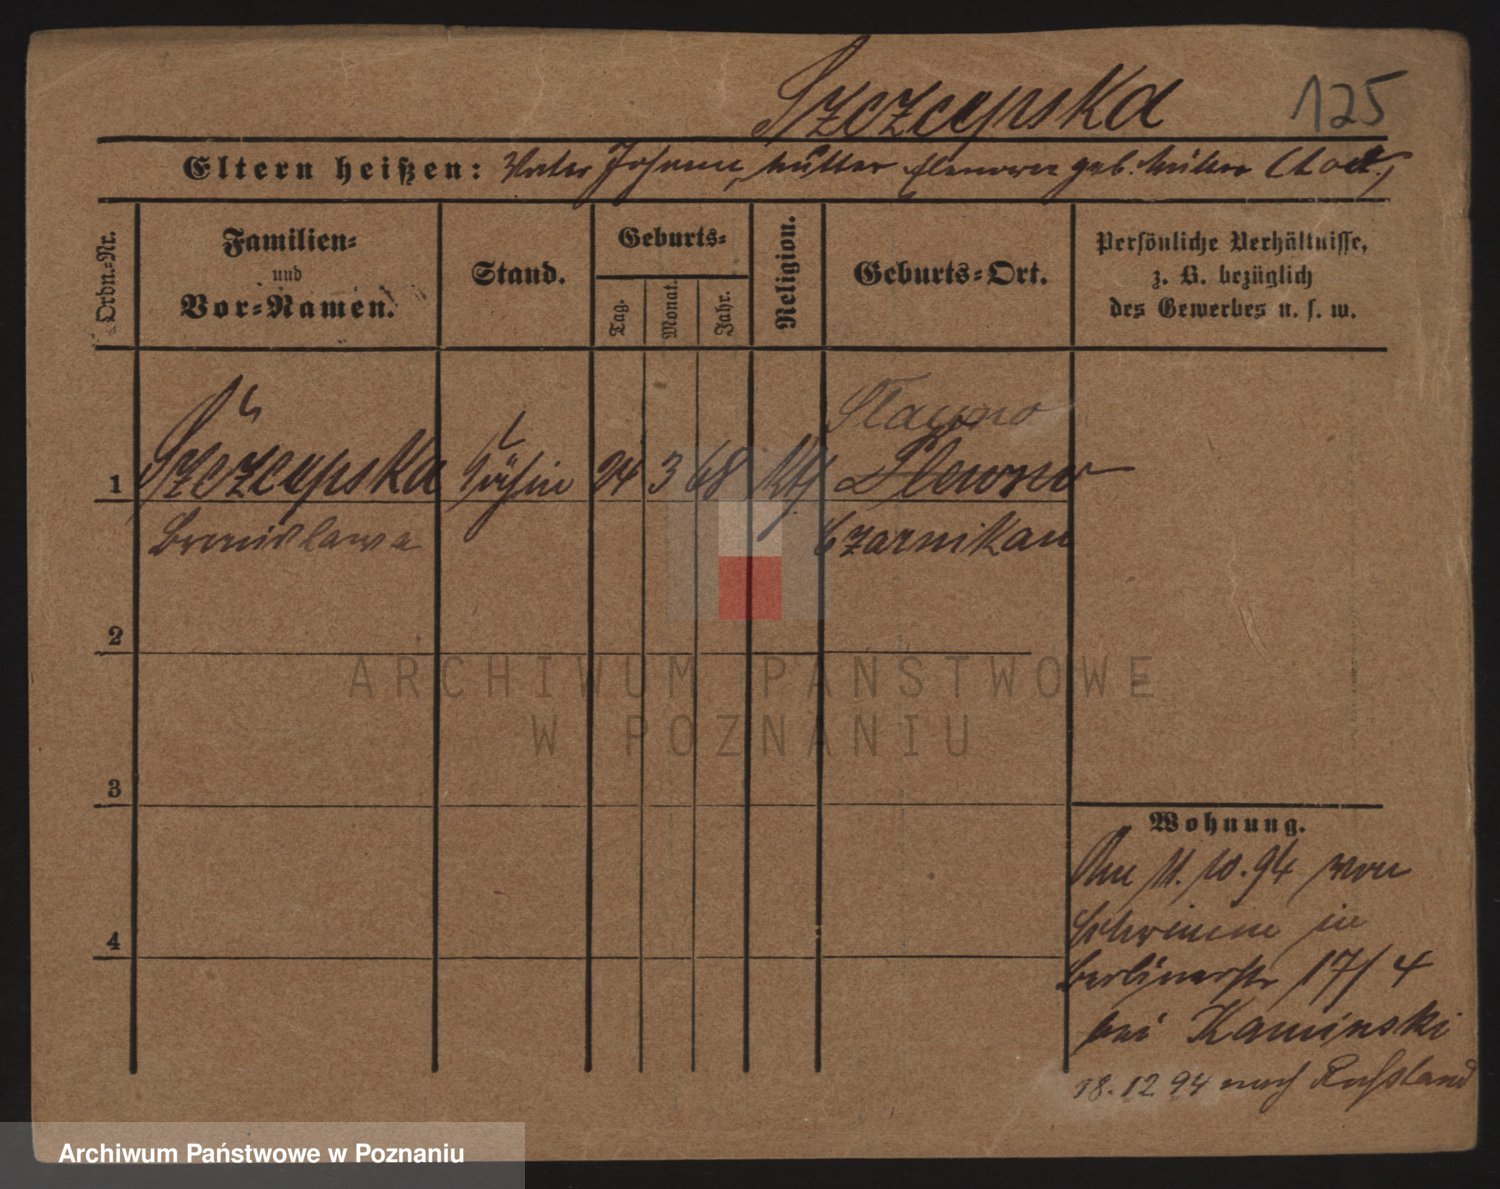 Szczepska 125
Eltern heißen: Vater Johann, Mutter geb. (todt)
Ordn.-Nr.
Familien-
und
Vor-Namen.
Stand.
Geburts-
Tag.
Monat.
Jahr.
Religion.
Geburts-Ort.
Persönliche Verhältnisse,
z. B. bezüglich
des Gewerbes u. s. w.
1 Szczepska 24 3 68 kth
Bronislawa Czarnikau
2
3
4
Wohnung.
Am 11.10.94 von
in
Berlinerstr 17/4
bei Kaminski
18.12 94 nach Russland
ARCHIWUM PAŃSTWOWE
W POZNANIU
Archiwum Państwowe w Poznaniu